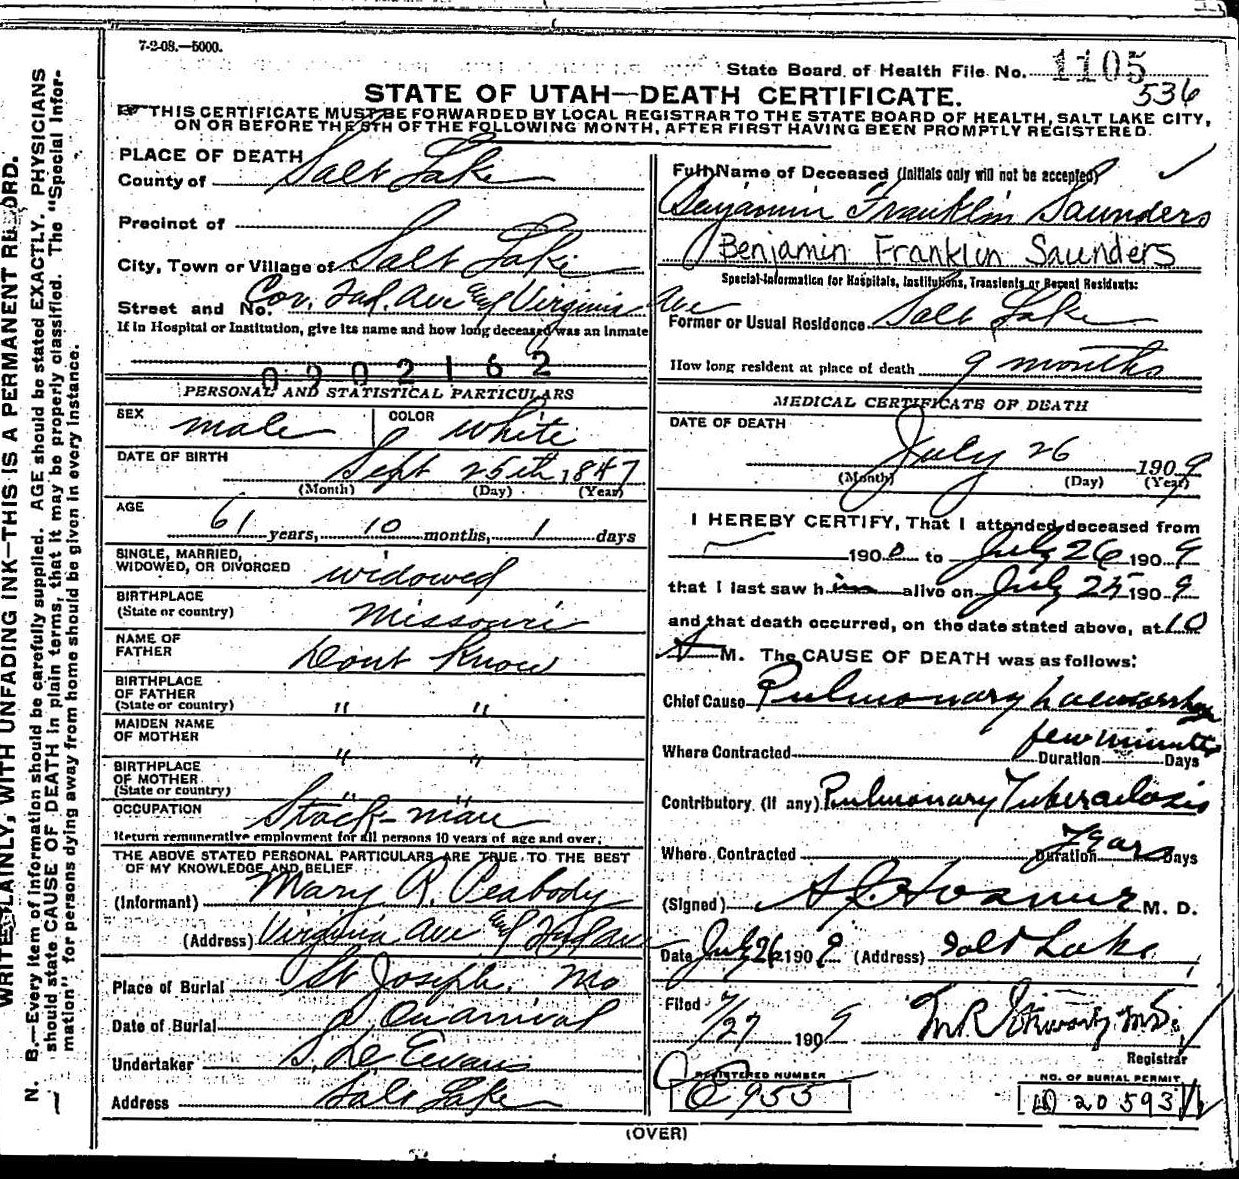 7-2-08.—5000.
State Board of Health File No. 1105
536
STATE OF UTAH—DEATH CERTIFICATE.
THIS CERTIFICATE MUST BE FORWARDED BY LOCAL REGISTRAR TO THE STATE BOARD OF HEALTH, SALT LAKE CITY,
ON OR BEFORE THE 5TH OF THE FOLLOWING MONTH, AFTER FIRST HAVING BEEN PROMPTLY REGISTERED.
WRITE PLAINLY, WITH UNFADING INK—THIS IS A PERMANENT RECORD.
N. B.—Every item of information should be carefully supplied. AGE should be stated EXACTLY. PHYSICIANS
should state CAUSE OF DEATH in plain terms, that it may be properly classified. The "Special Infor-
mation" for persons dying away from home should be given in every instance.
PLACE OF DEATH
County of Salt Lake
Precinct of
City, Town or Village of Salt Lake
Street and No. Cor. Ind. Ave and Virginia Ave
If in Hospital or Institution, give its name and how long deceased was an inmate
0202162
PERSONAL AND STATISTICAL PARTICULARS
SEX male COLOR white
DATE OF BIRTH
Sept 25th 1847
(Month) (Day) (Year)
AGE
61 years, 10 months, 1 days
SINGLE, MARRIED,
WIDOWED, OR DIVORCED widowed
BIRTHPLACE
(State or country) Missouri
NAME OF
FATHER Dont Know
BIRTHPLACE
OF FATHER
(State or country) " "
MAIDEN NAME
OF MOTHER " "
BIRTHPLACE
OF MOTHER
(State or country) " "
OCCUPATION Stock-man
Return remunerative employment for all persons 10 years of age and over.
THE ABOVE STATED PERSONAL PARTICULARS ARE TRUE TO THE BEST
OF MY KNOWLEDGE AND BELIEF
(Informant) Mary R. Peabody
(Address) Virginia Ave and Ind ave
Place of Burial St Joseph. Mo
Date of Burial
Undertaker S. De Evans
Address Salt Lake
Full Name of Deceased (Initials only will not be accepted)
Benjamin Franklin Saunders
Benjamin Franklin Saunders
Special Information for Hospitals, Institutions, Transients or Recent Residents:
Former or Usual Residence Salt Lake
How long resident at place of death 9 months
MEDICAL CERTIFICATE OF DEATH
DATE OF DEATH
July 26 1909
(Month) (Day) (Year)
I HEREBY CERTIFY, That I attended deceased from
190 to July 26 1909
that I last saw him alive on July 25 1909
and that death occurred, on the date stated above, at 10
A M. The CAUSE OF DEATH was as follows:
Chief Cause Pulmonary haemorrhage
few minutes
Where Contracted Duration Days
Contributory (If any) Pulmonary Tuberculosis
Years
Where Contracted Duration Days
(Signed) M. D.
Date July 26 1909 (Address) Salt Lake
Filed 7/27 1909
Registrar
REGISTERED NUMBER
955
NO. OF BURIAL PERMIT
20593
(OVER)